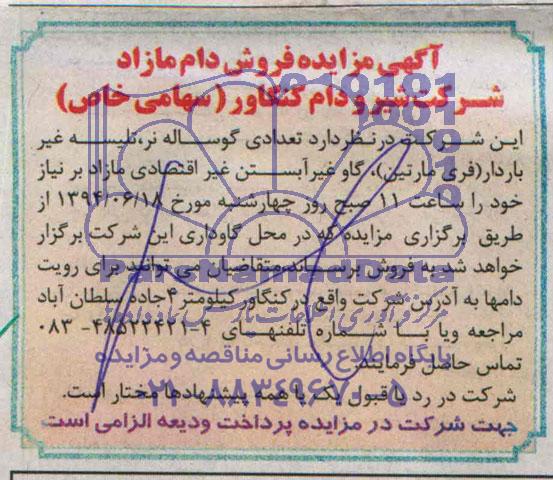 آگهی مزایده فروش دام مازاد
شرکت شیر و دام کنگاور (سهامی خاص)
این شرکت در نظر دارد تعدادی گوساله نر، تلیسه غیر
باردار (فری مارتین)، گاو غیرآبستن غیر اقتصادی مازاد بر نیاز
خود را ساعت ۱۱ صبح روز چهارشنبه مورخ ۱۳۹۴/۰۶/۱۸ از
طریق برگزاری مزایده که در محل گاوداری این شرکت برگزار
خواهد شد به فروش برساند، متقاضیان می توانند برای رویت
دامها به آدرس شرکت واقع در کنگاور کیلومتر ۴ جاده سلطان آباد
مراجعه ویا با شماره تلفنهای ۴-۴۸۵۲۲۴۲۱-۰۸۳
تماس حاصل فرمایند.
شرکت در رد یا قبول یک یا همه پیشنهادها مختار است.
جهت شرکت در مزایده پرداخت ودیعه الزامی است
ParsNamadData
پایگاه اطلاع رسانی مناقصه و مزایده
۰۲۱-۸۸۳۴۹۶۷۰-۵